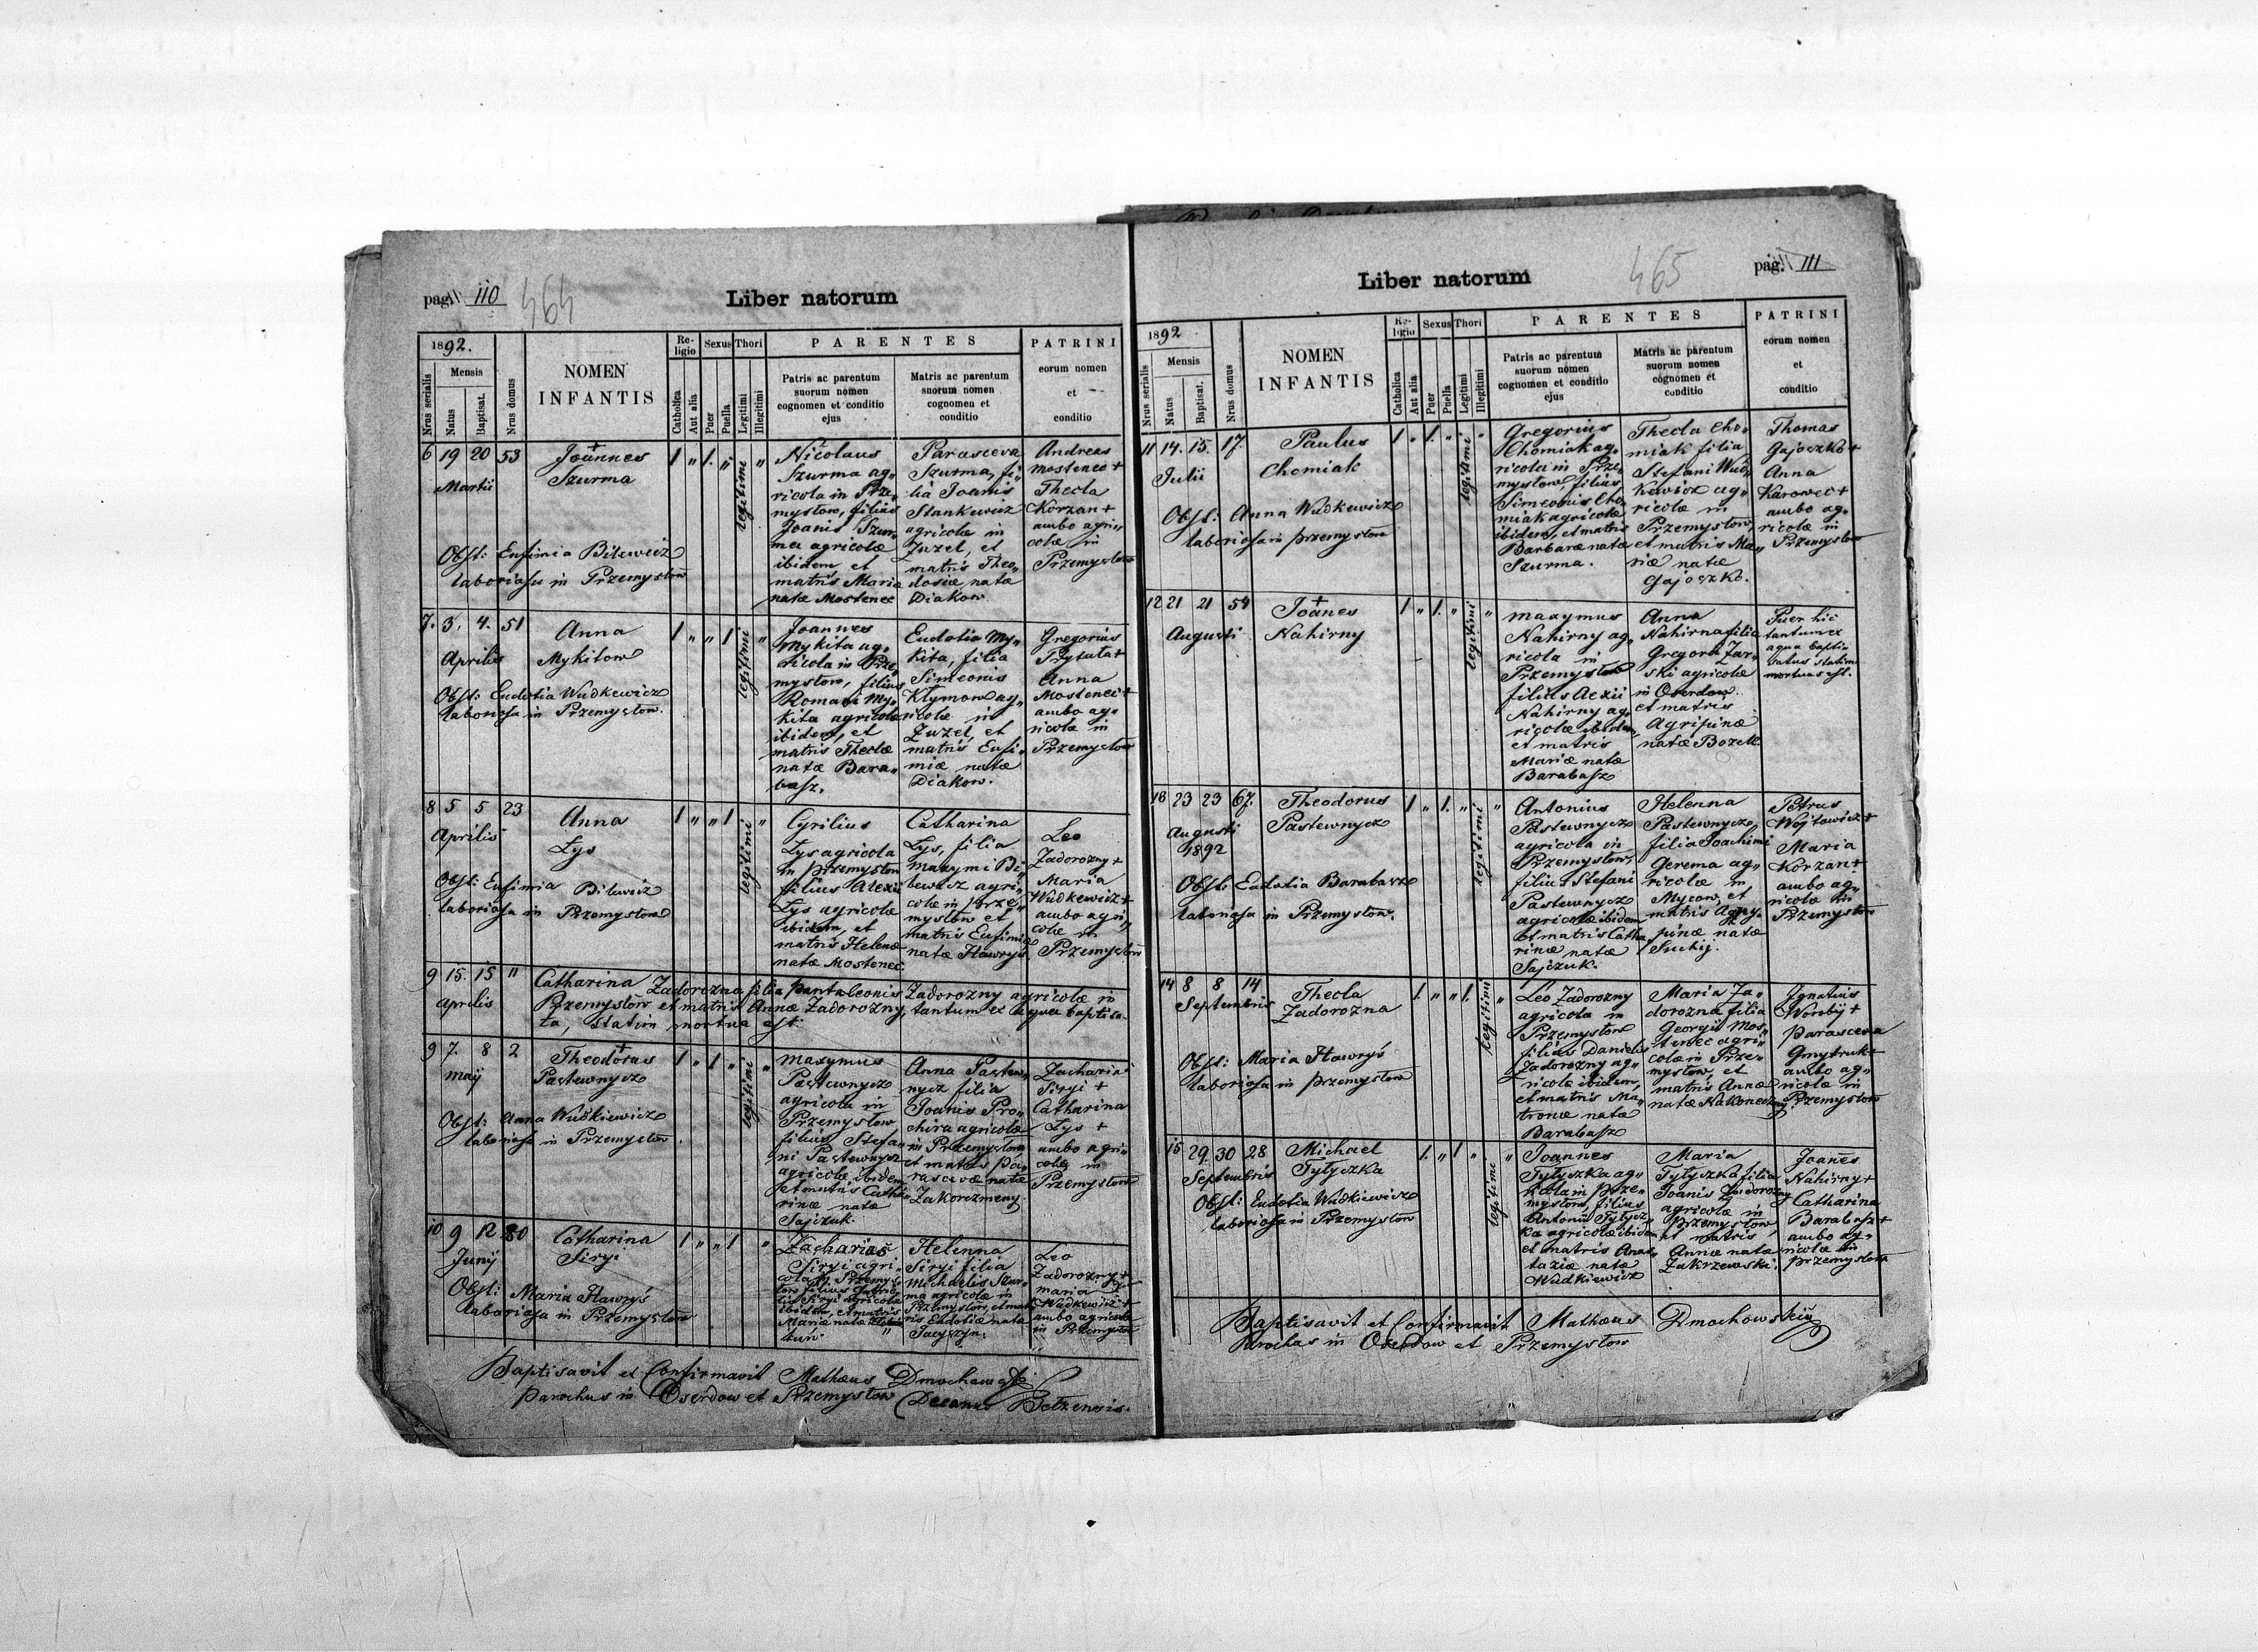 pag. 110 464
Liber natorum
1892.
Nrus serialis
Mensis
Natus
Baptisat.
Nrus domus
NOMEN
INFANTIS
Religio
Catholica
Aut alia
Sexus
Puer
Puella
Thori
Legitimi
Illegitimi
PARENTES
Patris ac parentum
suorum nomen
cognomen et conditio
ejus
Matris ac parentum
suorum nomen
cognomen et
conditio
PATRINI
eorum nomen
et
conditio
6 19 20 53
Martii
Joannes
Szurma
1 " 1. " legitimi "
Obst: Eufimia Bilewicz
laboriosa in Przemysłow
Nicolaus
Szurma ag„
ricola in Prze„
mysłow, filius
Joanis Szur„
ma agricolæ
ibidem et
matris Mariæ
natæ Mostenec
Parasceva
Szurma, fi„
lia Joanis
Stankewicz
agricolæ in
Zuzel, et
matris Theo„
dosiæ natæ
Diakow.
Andreas
Mostenec +
Thecla
Korzan +
ambo agri„
colæ in
Przemysłow
7. 3. 4. 51
Aprilis
Anna
Mykitow
1 " " 1 legitimi "
Obst: Eudotia Wudkewicz
laboriosa in Przemysłow.
Joannes
Mykita ag„
ricola in Prze„
mysłow, filius
Romani My„
kita agricolæ
ibidem, et
matris Theclæ
natæ Bara„
basz.
Eudotia My„
kita, filia
Simeonis
Kłymow ag„
ricolæ in
Zuzel, et
matris Eufi„
miæ natæ
Diakow.
Gregorius
Prytuła +
Anna
Mostenec +
ambo ag„
ricolæ in
Przemysłow
8 5 5 23
Aprilis
Anna
Lys
1 " " 1 legitimi "
Obst: Eufimia Bilewicz
laboriosa in Przemysłow
Cyrilius
Lys agricola
in Przemysłow
filius Alexii
Lys agricolæ
ibidem, et
matris Helenæ
natæ Mostenec.
Catharina
Lys, filia
Maxymi Bi„
lewicz agri„
colæ in Prze„
mysłow et
matris Eufimiæ
natæ Hawryś.
Leo
Zadorozny +
Maria
Wudkewicz +
ambo agri„
colæ in
Przemysłow
9 15. 15 "
Aprilis
Catharina Zadorozna filia Pantaleonis Zadorozny agricolæ in
Przemysłow et matris Annæ Zadorozny, tantum ex aqua baptisa„
ta, statim mortua est.
9 7. 8 2
Maij
Theodorus
Pastewnycz
1 " 1 " legitimi "
Obst: Anna Wudkiewicz
laboriosa in Przemysłow.
Maxymus
Pastewnycz
agricola in
Przemysłow
filius Stefa„
ni Pastewnycz
agricolæ ibidem
et matris Catha„
rinæ natæ
Sajczuk.
Anna Pastew„
nycz filia
Joanis Pro„
chira agricolæ
in Przemysłow
et matris Pa„
rascevæ natæ
Zakorczmeny.
Zacharia
Siryi +
Catharina
Lys +
ambo agri„
colæ in
Przemysłow
10 9 12 80
Junij
Catharina
Siryi
1 " " 1 "
Obst: Maria Hawryś
laboriosa in Przemysłow
Zacharias
Siryi agri„
cola in Przemys„
Helenna
Siryi filia
Michaelis Szur„
ma agricolæ in
Przemysłow, et mat„
ris Eudotiæ natæ
Leo
Zadorozny +
Maria
Wudkewicz +
ambo agricolæ
in Przemysłow
Baptisavit et Confirmavit Mathæus Dmochowski
Parochus in Oserdow et Przemysłow Decanus Bełzensis.
465 pag. 111
Liber natorum
1892
Nrus serialis
Mensis
Natus
Baptisat.
Nrus domus
NOMEN
INFANTIS
Religio
Catholica
Aut alia
Sexus
Puer
Puella
Thori
Legitimi
Illegitimi
PARENTES
Patris ac parentum
suorum nomen
cognomen et conditio
ejus
Matris ac parentum
suorum nomen
cognomen et
conditio
PATRINI
eorum nomen
et
conditio
11 14. 15. 17.
Julii
Paulus
Chomiak
1 " 1. " legitimi "
Obst: Anna Wudkewicz
laboriosa in Przemysłow
Gregorius
Chomiak ag„
ricola in Prze„
mysłow, filius
Simeonis Cho„
miak agricolæ
ibidem, et matris
Barbaræ natæ
Szurma.
Thecla Cho„
miak filia
Stefani Wud„
kewicz ag„
ricolæ in
Przemysłow,
et matris Ma„
riæ natæ
Gajoczko.
Thomas
Gajoczko +
Anna
Karowec +
ambo ag„
ricolæ in
Przemysłow
12 21 21 54
Augusti
Joanes
Nahirny
1 " 1. " legitimi "
Maxymus
Nahirny ag„
ricola in
Przemysłow
filius Alexii
Nahirny ag„
ricolæ ibidem,
et matris
Mariæ natæ
Barabasz
Anna
Nahirna filia
Gregorii Zar„
ski agricolæ
in Oserdow.
et matris
Agripinæ
natæ Bozek.
Puer hic
tantum ex
aqua bapti„
satus statim
mortuus est.
13 23 23 67.
Augusti
1892
Theodorus
Pastewnycz
1 " 1. " legitimi "
Obst: Eudotia Barabasz
laboriosa in Przemysłow.
Antonius
Pastewnycz
agricola in
Przemysłow,
filius Stefani
Pastewnycz
agricolæ ibidem
et matris Catha„
rinæ natæ
Sajczuk.
Helenna
Pastewnycz,
filia Joachimi
Gerema ag„
ricolæ in
Mycow, et
matris Agry„
pinæ natæ
Suchij.
Petrus
Wojtowicz +
Maria
Korzan +
ambo ag„
ricolæ in
Przemysłow
14 8 8 14
Septembris
Thecla
Zadorozna
1. " " 1. legitimi "
Obst: Maria Hawryś
laboriosa in Przemysłow
Leo Zadorozny
agricola in
Przemysłow
filius Danielis
Zadorozny ag„
ricolæ ibidem,
et matris Ma„
tronæ natæ
Barabasz
Maria Za„
dorozna filia
Georgii Mos„
tenec agri„
colæ in Prze„
mysłow, et
matris Annæ
natæ Nakoneczny.
Ignatius
Worobij +
Parasceva
Gmytruk +
ambo ag„
ricolæ in
Przemysłow
15 29. 30 28
Septembris
Michael
Tyłyszka
1. " 1 " legitimi "
Obst: Eudotia Wudkiewicz
laboriosa in Przemysłow
Joannes
Tyłyszka ag„
ricola in Prze„
mysłow, filius
Antonii Tyłysz„
ka agricolæ ibidem
et matris Anas„
taziæ natæ
Wudkiewicz
Maria
Tyłyszka filia
Joanis Zadorozny
agricolæ in
Przemysłow,
et matris
Annæ natæ
Zakrzewski.
Joanes
Nahirny +
Catharina
Barabasz +
ambo ag„
ricolæ in
Przemysłow
Baptisavit et Confirmavit Mathæus Dmochowskij
Parochus in Oserdow et Przemysłow